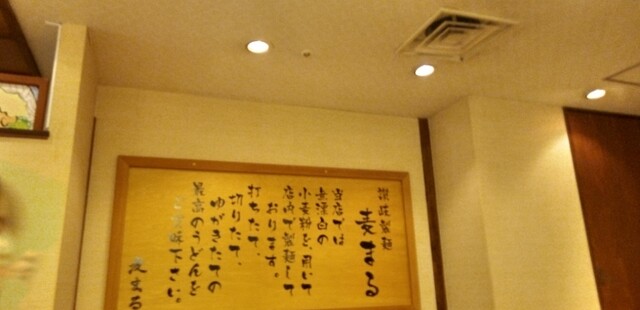 讃岐製麺
麦まる
当店では
無漂白の
小麦粉を用いて
店内で製麺して
おります。
打ちたて、
切りたて、
ゆがきたての
最高のうどんを
ご賞味下さい。
麦まる